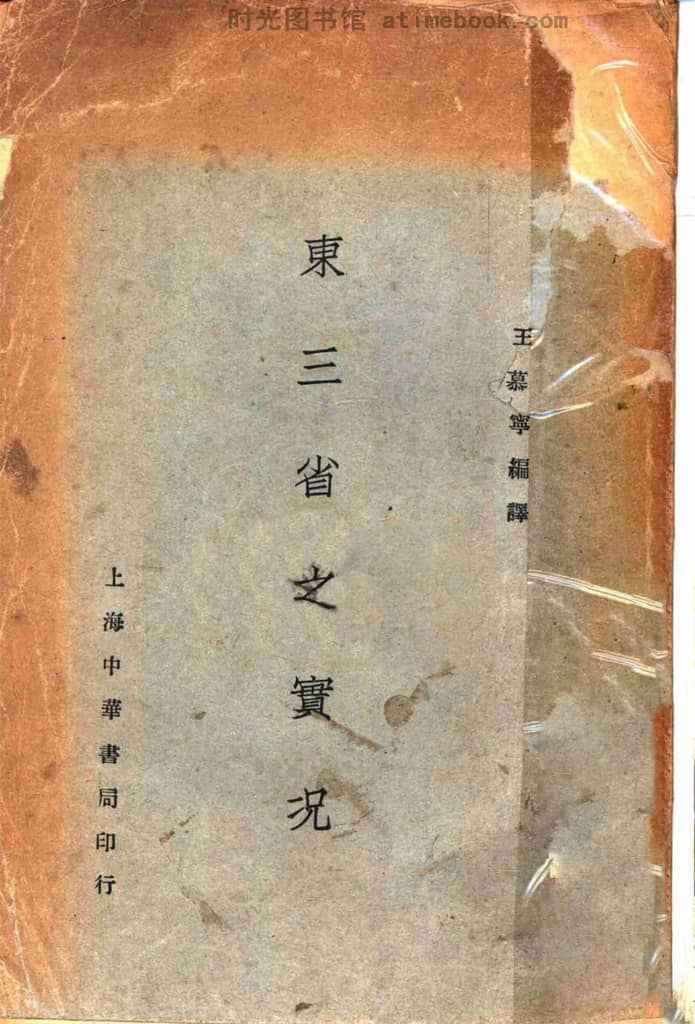 时光图书馆 atimebook.com
王慕寧編譯
東三省之實況
上海中華書局印行